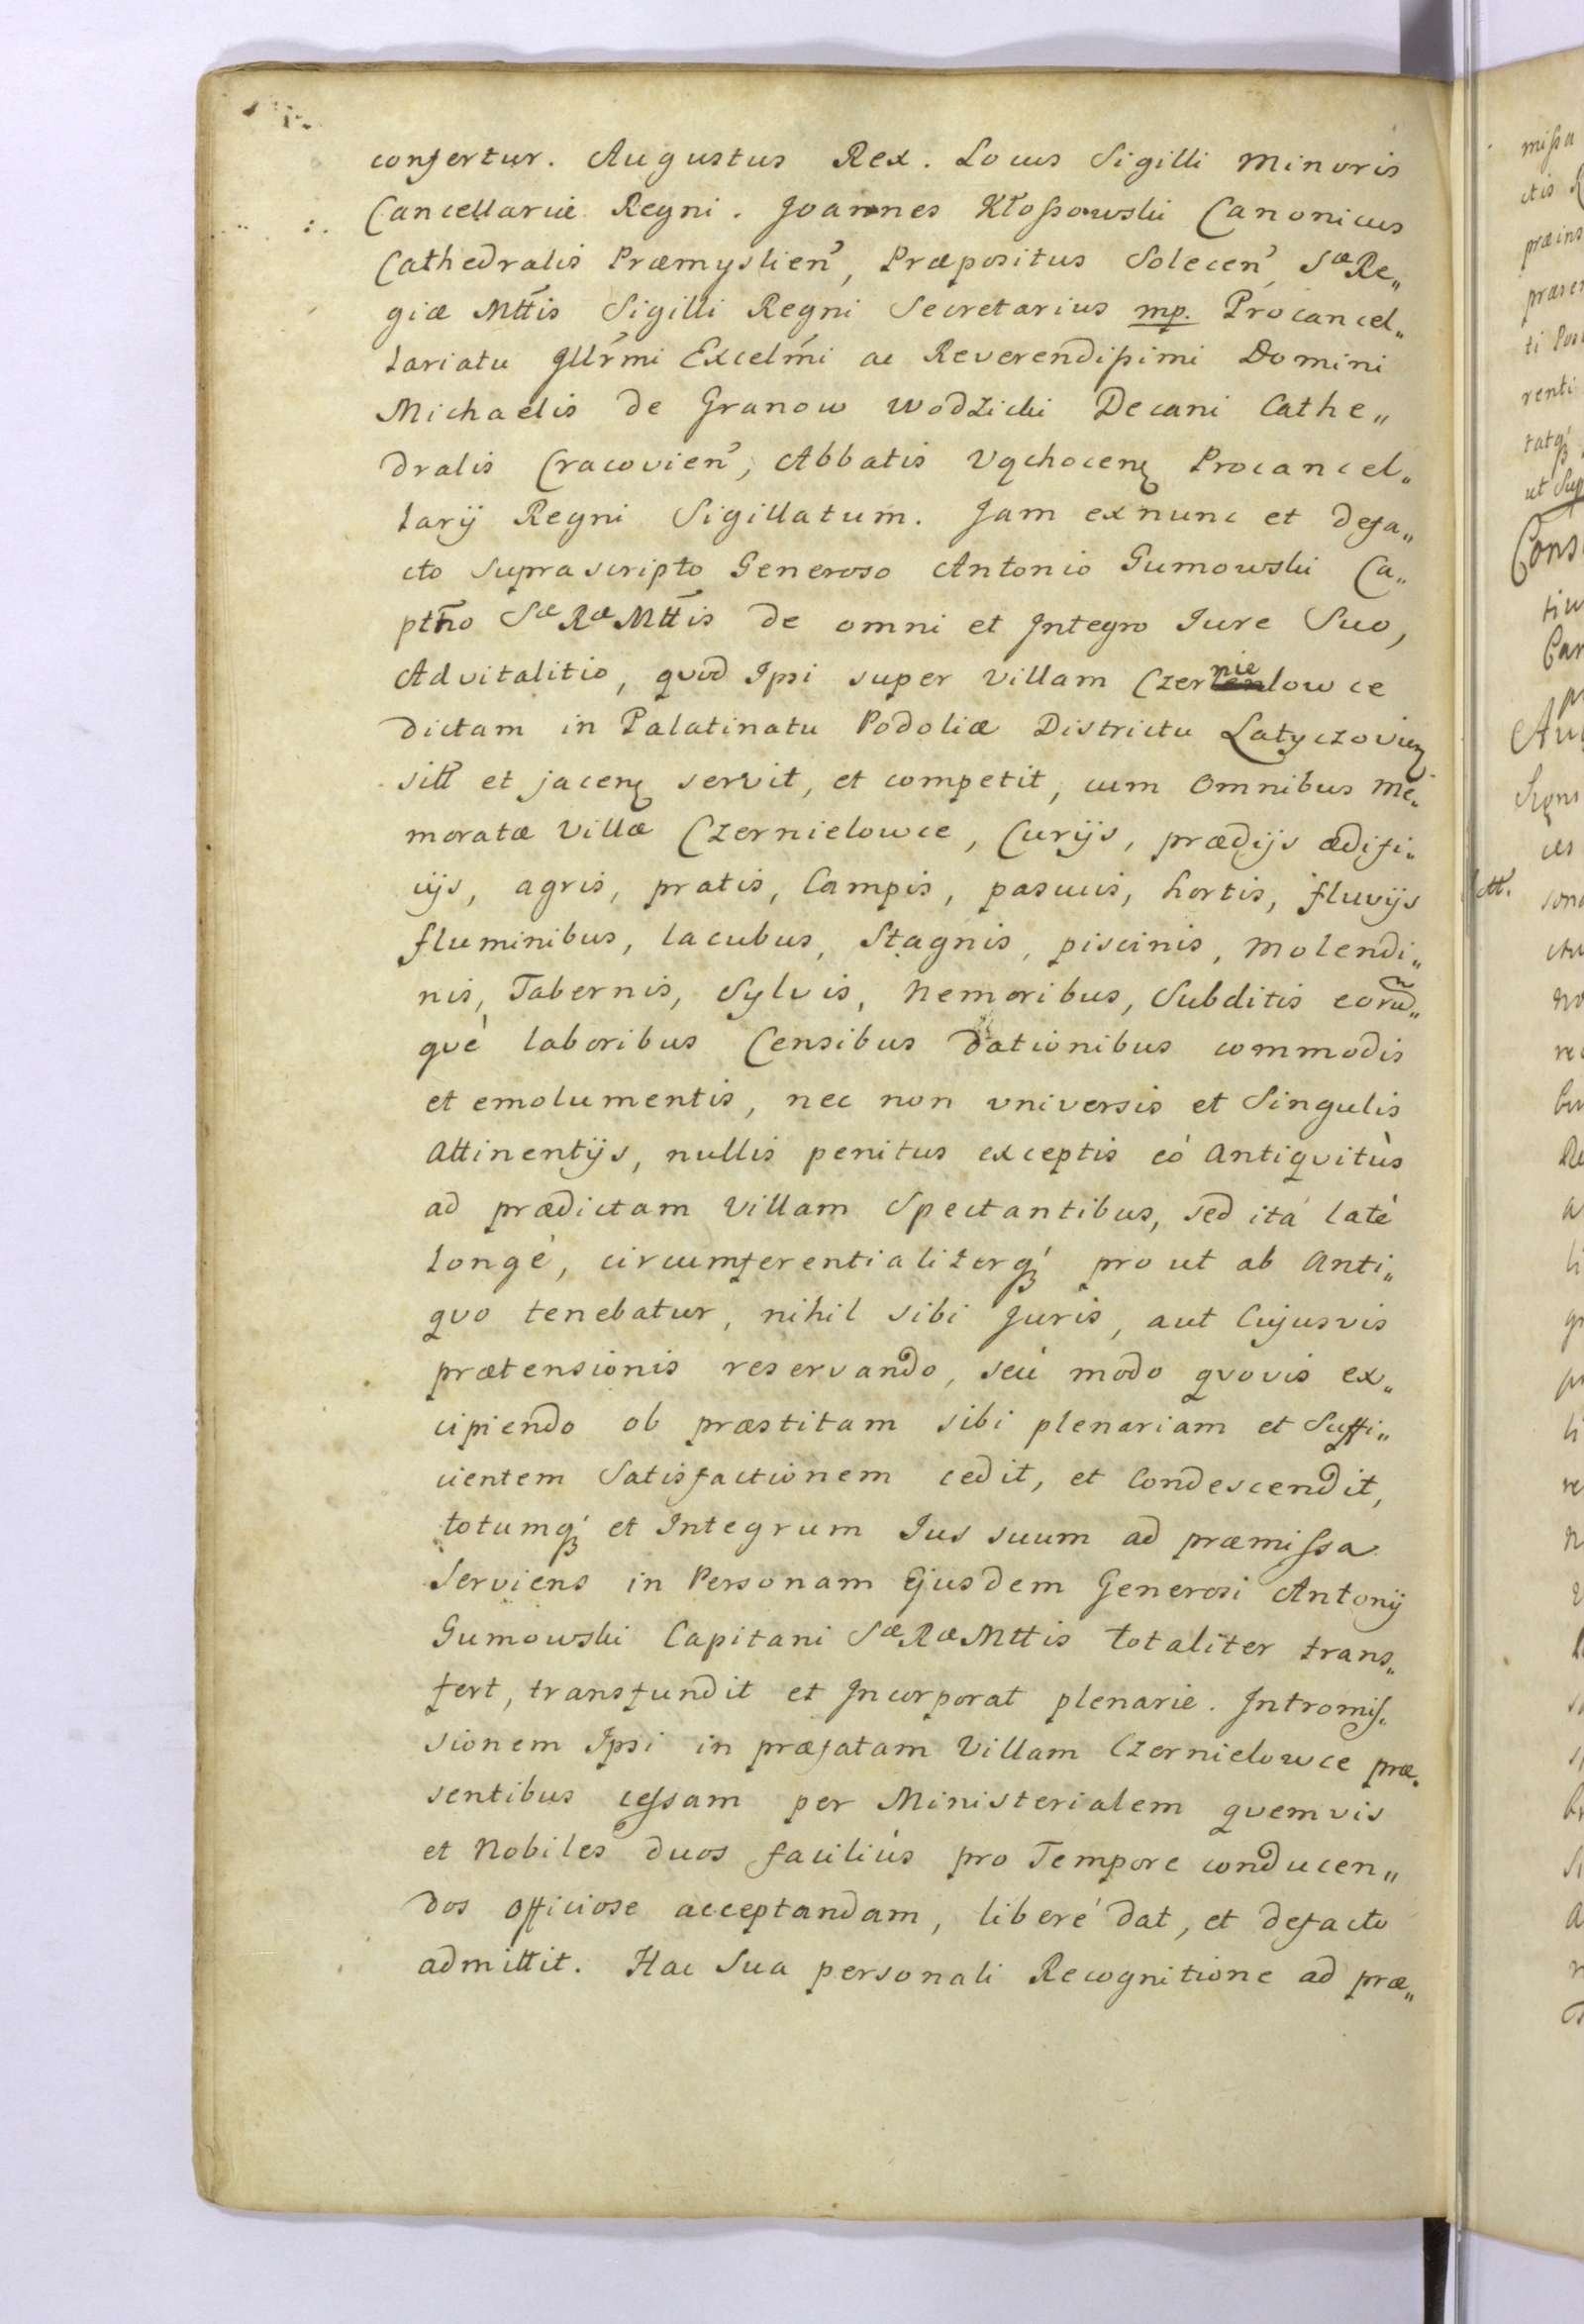 confertur. Augustus Rex. Locus Sigilli Minoris
Cancellariæ Regni. Joannes Kłossowski Canonicus
Cathedralis Præmyslien̄, Præpositus Solecen̄, Sæ Re„
giæ Mttis Sigilli Regni Secretarius mp. Procancel„
lariatu Jllr̄mi Excelm̄i ac Reverendissimi Domini
Michaelis de Granow Wodzicki Decani Cathe„
dralis Cracovien̄, Abbatis Vąchocen Procancel„
larij Regni Sigillatum. Jam exnunc et defa„
cto suprascripto Generoso Antonio Gumowski Ca„
ptn̄o Sæ Ræ Mttis de omni et Jntegro Jure Suo,
Advitalitio, quod Ipsi super Villam Czernielowce
dictam in Palatinatu Podoliæ Districtu Latyczovien
sitt et jacen servit, et competit, cum Omnibus me„
moratæ Villæ Czernielowce, Curijs, prædijs ædifi„
cijs, agris, pratis, Campis, pascuis, hortis, fluvijs
fluminibus, lacubus, Stagnis, piscinis, Molendi„
nis, Tabernis, Sylvis, Nemoribus, Subditis eorud̄„
què laboribus Censibus dationibus commodis
et emolumentis, nec non universis et Singulis
Attinentijs, nullis penitus exceptis eò Antiquitùs
ad prædictam Villam Spectantibus, sed ità latè
longè, circumferentialiterq́ prout ab Anti„
quo tenebatur, nihil sibi Juris, aut Cujusvis
prætensionis reservando, seù modo quovis ex„
cipiendo ob præstitam sibi plenariam et Suffi„
cientem Satisfactionem cedit, et Condescendit,
totumq́ et Integrum Jus suum ad præmissa
Serviens in Personam Ejusdem Generosi Antonij
Gumowski Capitani Sæ Ræ Mttis totaliter trans„
fert, transfundit et Jncorporat plenarie. Jntromis„
sionem Ipsi in præfatam Villam Czernielowce præ„
sentibus cessam per Ministerialem quemvis
et Nobiles duos faciliùs pro Tempore conducen„
dos officiose acceptandam, liberè dat, et defacto
admittit. Hac Sua personali Recognitione ad præ„